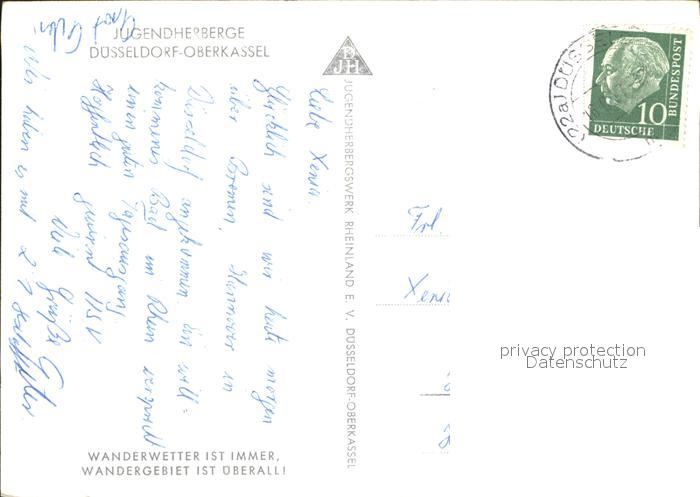 JUGENDHERBERGE
DÜSSELDORF-OBERKASSEL
DJH
JUGENDHERBERGSWERK RHEINLAND E. V. DÜSSELDORF-OBERKASSEL
Liebe Xenia.
Glücklich sind wir heut morgen
über Bremen, Hannover in
Düsseldorf angekommen. Ein will=
kommenes Bad im Rhein verspricht
einen guten Tagesausgang.
Hoffentlich gewinnt HSV
Viele Grüße
Wir haben es mit 2:1
WANDERWETTER IST IMMER,
WANDERGEBIET IST ÜBERALL!
(22a) DÜSS
10
DEUTSCHE
BUNDESPOST
Frl.
Xenia
privacy protection
Datenschutz